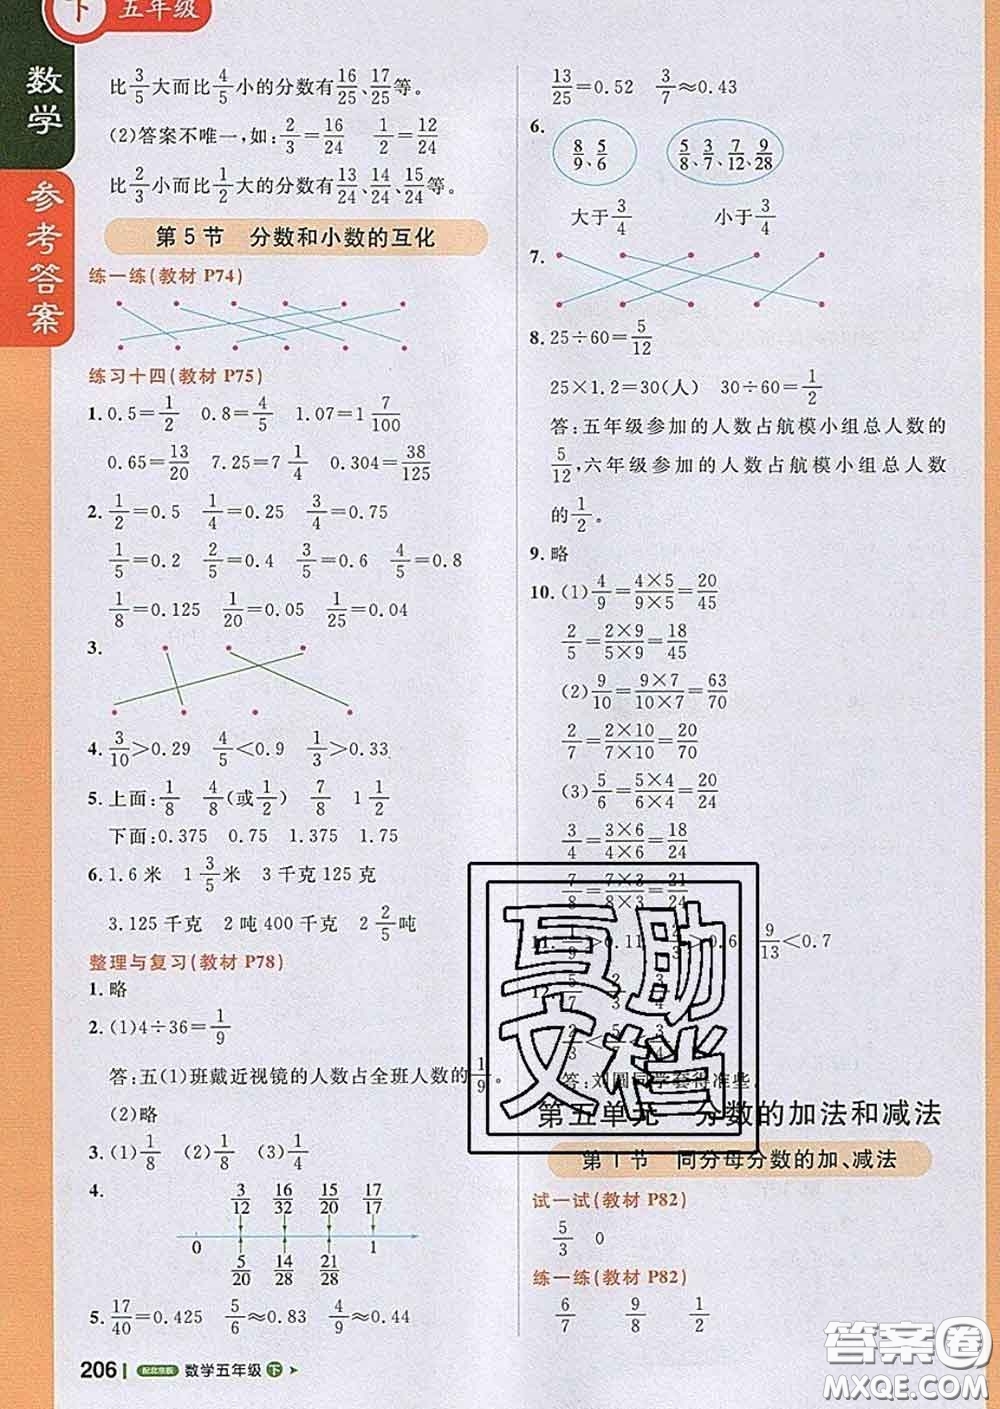 下 五年级
数学
参考答案
比3/5大而比4/5小的分数有16/25、17/25等。
(2)答案不唯一,如:2/3=16/24 1/2=12/24
比2/3小而比1/2大的分数有13/24、14/24、15/24等。
第5节 分数和小数的互化
练一练(教材P74)
练习十四(教材P75)
1. 0.5=1/2 0.8=4/5 1.07=1 7/100
0.65=13/20 7.25=7 1/4 0.304=38/125
2. 1/2=0.5 1/4=0.25 3/4=0.75
1/5=0.2 2/5=0.4 3/5=0.6 4/5=0.8
1/8=0.125 1/20=0.05 1/25=0.04
3.
4. 3/10>0.29 4/5<0.9 1/3>0.33
5. 上面:1/8 4/8(或1/2) 7/8 1 1/2
下面:0.375 0.75 1.375 1.75
6. 1.6米 1 3/5米 3千克125克
3.125千克 2吨400千克 2 2/5吨
整理与复习(教材P78)
1. 略
2. (1)4÷36=1/9
答:五(1)班戴近视镜的人数占全班人数的1/9。
(2)略
3. (1)1/8 (2)1/8 (3)1/8
4.
3/12 16/32 15/20 17/17
0 1
5/20 14/28 21/28
5. 17/40=0.425 5/6≈0.83 4/9≈0.44
206 配北京版 数学五年级 下
13/25=0.52 3/7≈0.43
6.
8/9、5/6 5/8、3/7、7/12、9/28
大于3/4 小于3/4
7.
8. 25÷60=5/12
25×1.2=30(人) 30÷60=1/2
答:五年级参加的人数占航模小组总人数的
5/12,六年级参加的人数占航模小组总人数
的1/2。
9. 略
10. (1)4/9=4×5/9×5=20/45
2/5=2×9/5×9=18/45
(2)9/10=9×7/10×7=63/70
2/7=2×10/7×10=20/70
(3)5/6=5×4/6×4=20/24
3/4=3×6/4×6=18/24
7/8=7×3/8×3=21/24
>0.11 >0.6 9/13<0.7
答:刘圆同学套得准些.
第五单元 分数的加法和减法
第1节 同分母分数的加、减法
试一试(教材P82)
5/3 0
练一练(教材P82)
6/7 9/8 1/2
互助
文档
答案圈
MXQE.COM